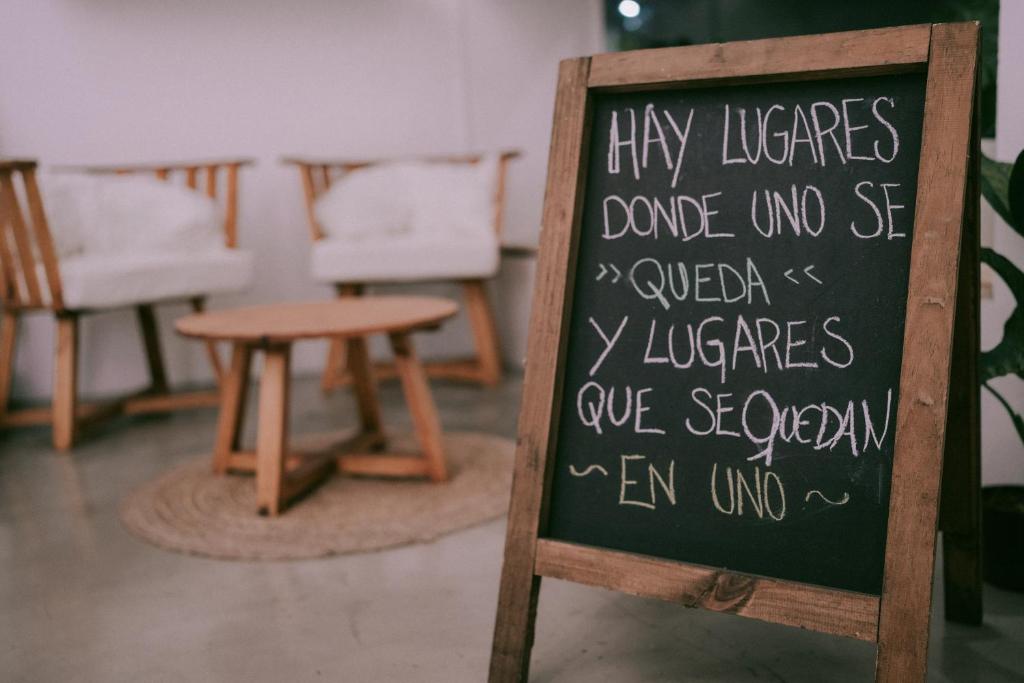 HAY LUGARES
DONDE UNO SE
>> QUEDA <<
Y LUGARES
QUE SE QUEDAN
~ EN UNO ~